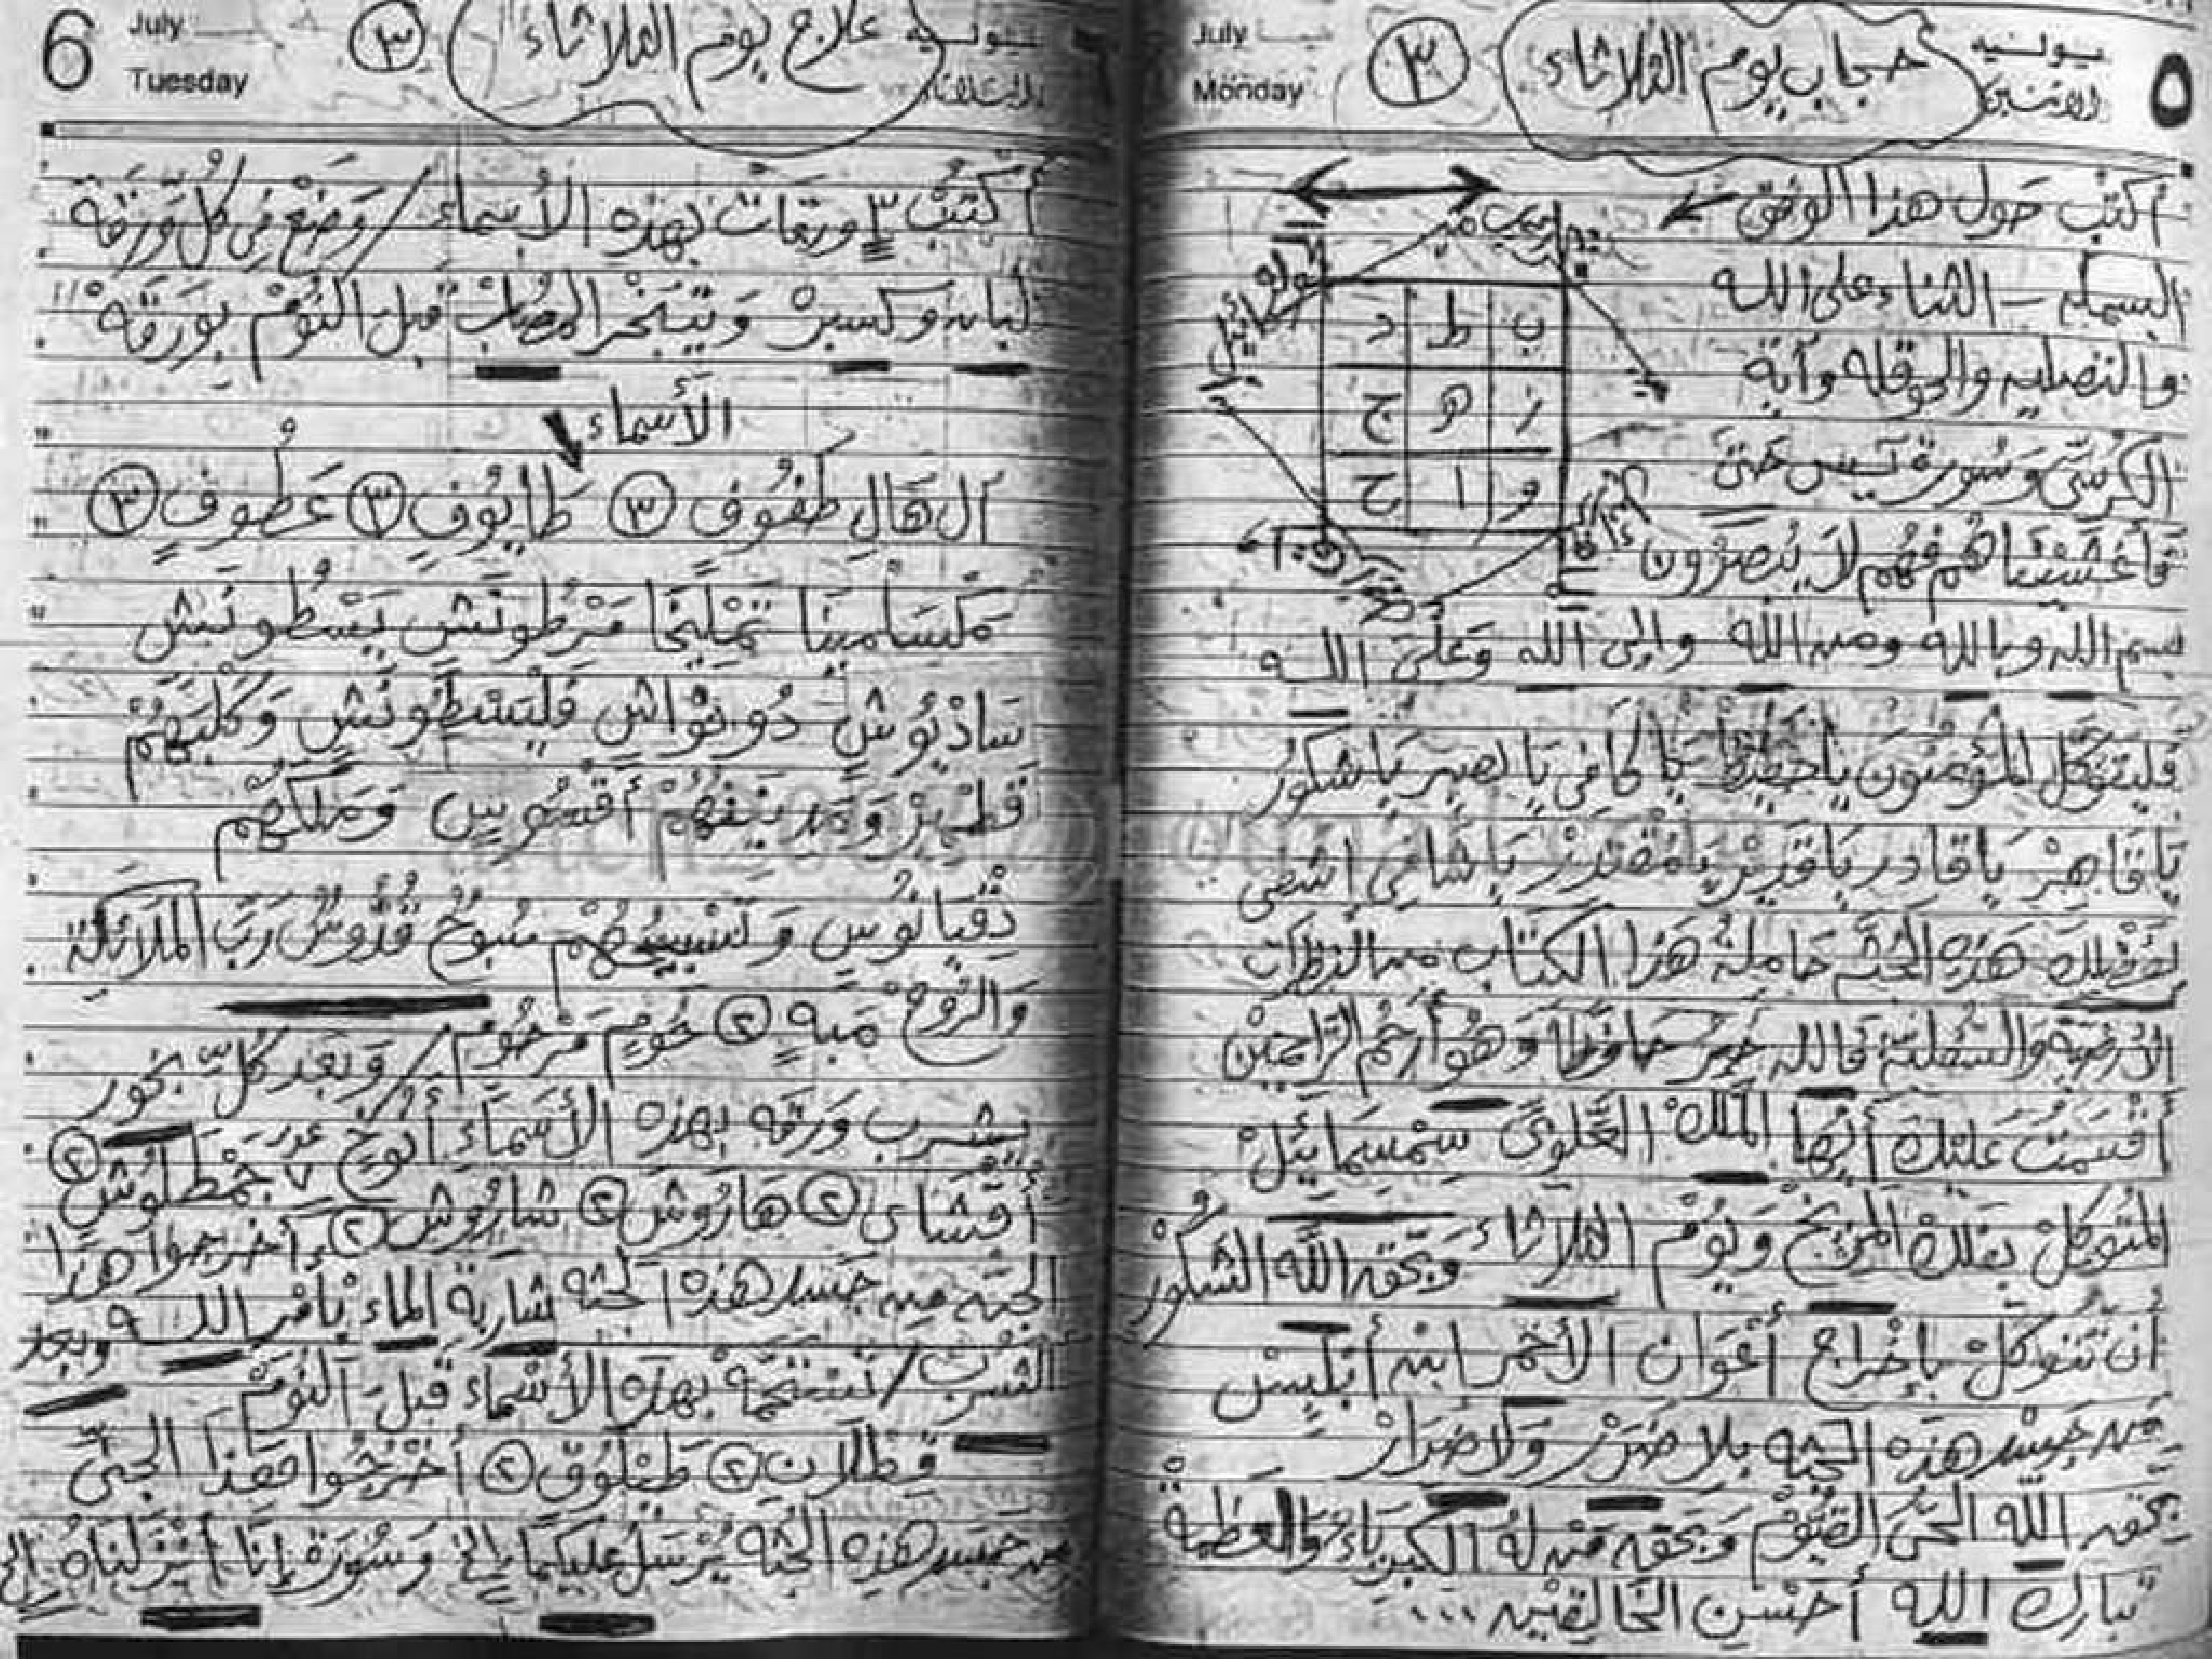 ٥
يوليه
الاثنين
حجاب يوم الثلاثاء
٣
July
Monday
أكتب حول هذا الوفق
البسمله – الثناء على الله
والتصليه والحوقله وآية
الكرسي وسورة يس حتى
فأغشيناهم فهم لا يبصرون
ب ط د
ز ه ج
و ا ح
بسم الله وبالله ومن الله وإلى الله وعلى الله
فليتوكل المؤمنون يا حفيظ يا كافي يا نصير يا شكور
يا قاهر يا قادر يا قدير يا مقتدر يا شافي اشفي
بفضلك هذه الجثه حاملة هذا الكتاب من النظرات
الأرضية والسفلية فالله خير حافظا وهو أرحم الراحمين
أقسمت عليك أيها الملك العلوي سمسمائيل
المتوكل بفلك المريخ ويوم الثلاثاء وبحق الله الشكور
أن تتوكل بإخراج أعوان الأحمر ابن أبليس
من جسد هذه الجثه بلا ضرر ولا ضرار
بحق الله الحي القيوم وبحق من له الكبرياء والعظمة
تبارك الله أحسن الخالقين ...
6
July
Tuesday
٣
علاج يوم الثلاثاء
يوليه
أكتب ٣ ورقات بهذه الأسماء / وضع في كل ورقة
لبان وكسبر ويتبخر المصاب قبل النوم بورقة
الأسماء
آل هال طفوف ٣ طايوف ٣ عطوف ٣
مكسلمينا تمليخا مرطونش ينسطونش
سادنوش دونواش فليستطونش وكلبهم
قطمير ومدينتهم أفسوس وملكهم
دقيانوس وتسبيحهم سبوح قدوس رب الملائكة
والروح مبه ٢ خوم مرخوم / وبعد كل بخور
يشرب ورقه بهذه الأسماء أنوخ عدد ٧ خمطلوش ٢
أقشاي ٢ هاروش ٢ شاروش ٢ أخرجوا هذا
الجن من جسد هذه الجثه شاربة الماء بأمر الله وبعد
الشرب / تستحمه بهذه الأسماء قبل النوم
قظلان ٢ طنلوق ٢ أخرجوا هذا الجني
من جسد هذه الجثه يرسل عليكما الخ وسورة إنا أنزلناه الخ